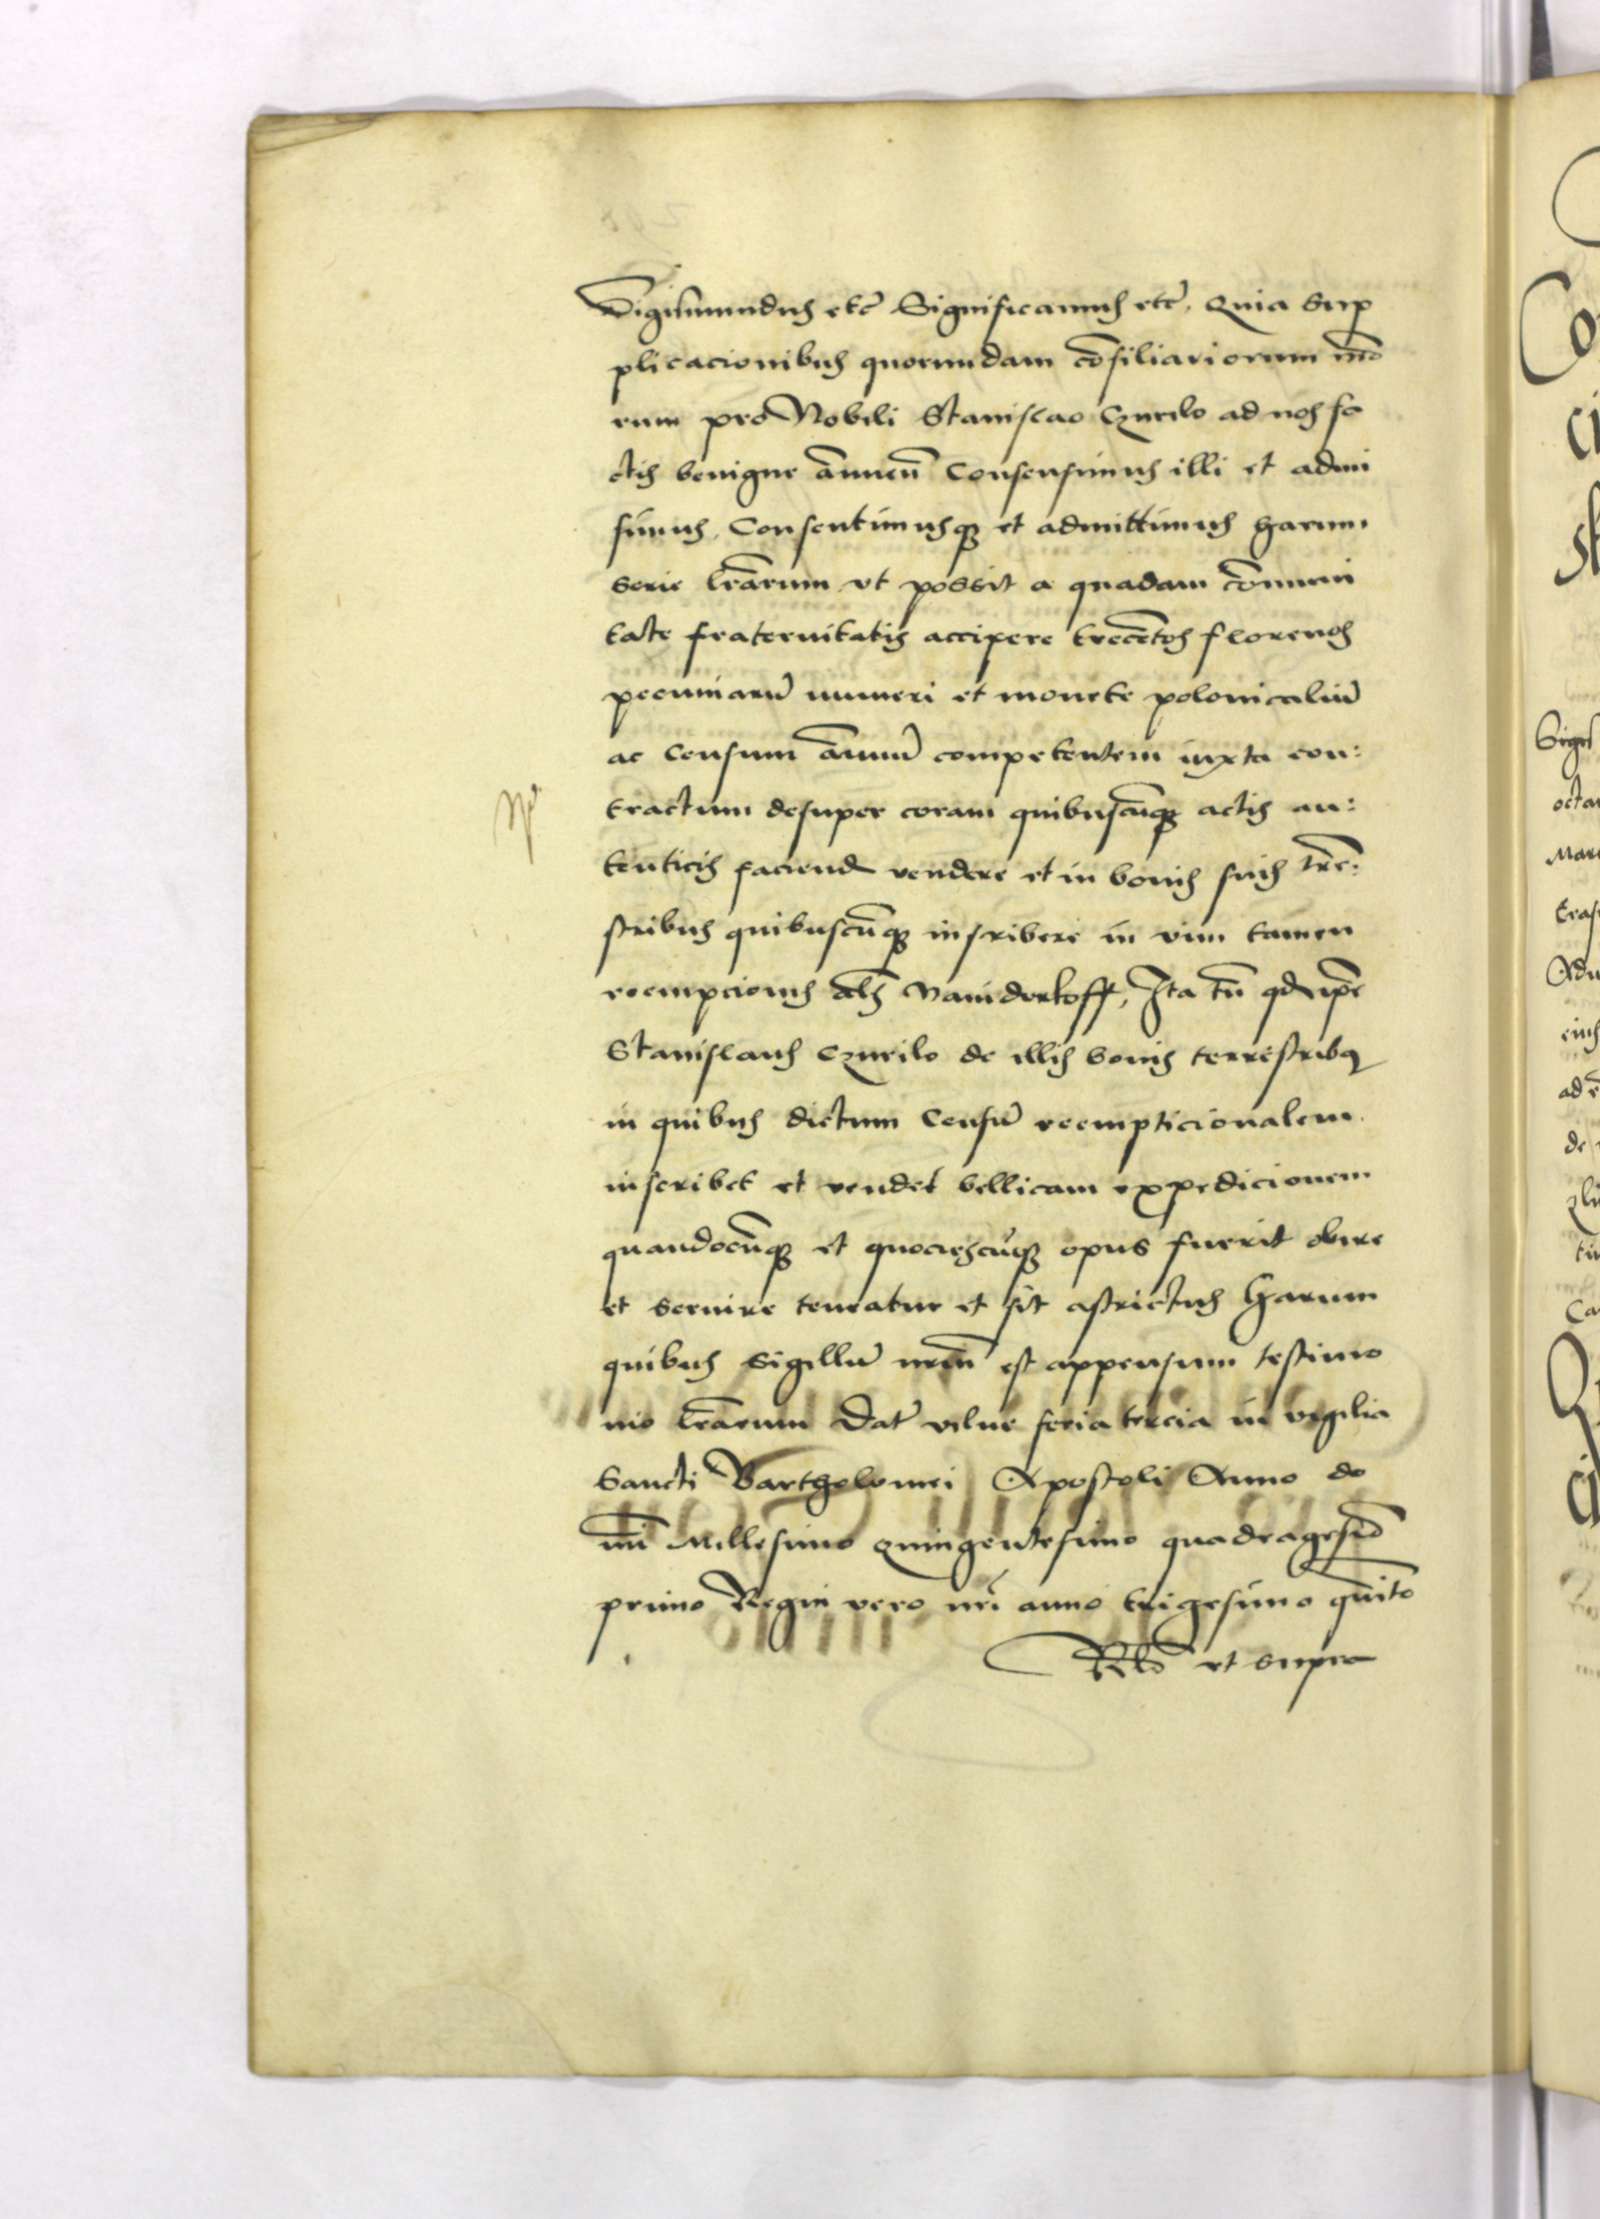 Sigismundus etc̃ Significamus etc̃. Quia Sup
plicacionibus quorundam cõsiliariorum nr̃o
rum pro Nobili Stanislao Czurilo ad nos fa
ctis benigne ãnueñ Consensimus illi et admi
simus, Consentimusqꝫ et admittimus harum
serie lr̃arum vt possit a quadam cõmuni
tate fraternitatis accipere trecẽtos florenos
pecuniarũ numeri et monete polonicaliũ
ac censum ãnuũ competentem iuxta con:
tractum desuper coram quibuscũqꝫ actis au:
tenticis faciend vendere et in bonis suis tr̃e:
stribus quibuscũqꝫ inscribere in vim tamen
reempcionis als Naniderkoff, Ita tñ qd ip̃e
Stanislaus Czurilo de illis bonis terrestribꝫ
in quibus dictum Censũ reempticionalem
inscribet et vendet bellicam expedicionem
quandocũqꝫ et quociescũqꝫ opus fuerit obire
et seruire teneatur et sit astrictus Harum
quibus Sigillũ nr̃m est appensum testimo
nio lr̃arum Dat̃ vilne feria tercia in vigilia
Sancti Bartholomei Apostoli Anno do
mĩ Millesimo quingentesimo quadragesiõ
primo Regni vero nr̃i anno trigesimo quĩto
Rl̃o vt supra
Sigis